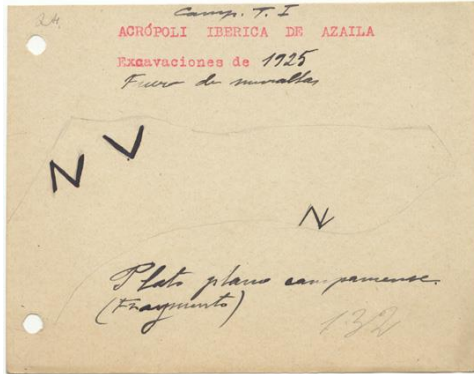 24.
Camp. T. I
ACRÓPOLI IBERICA DE AZAILA
Excavaciones de 1925
Fuera de murallas
N V
N
Plato plano campaniense.
(Fragmento)
132